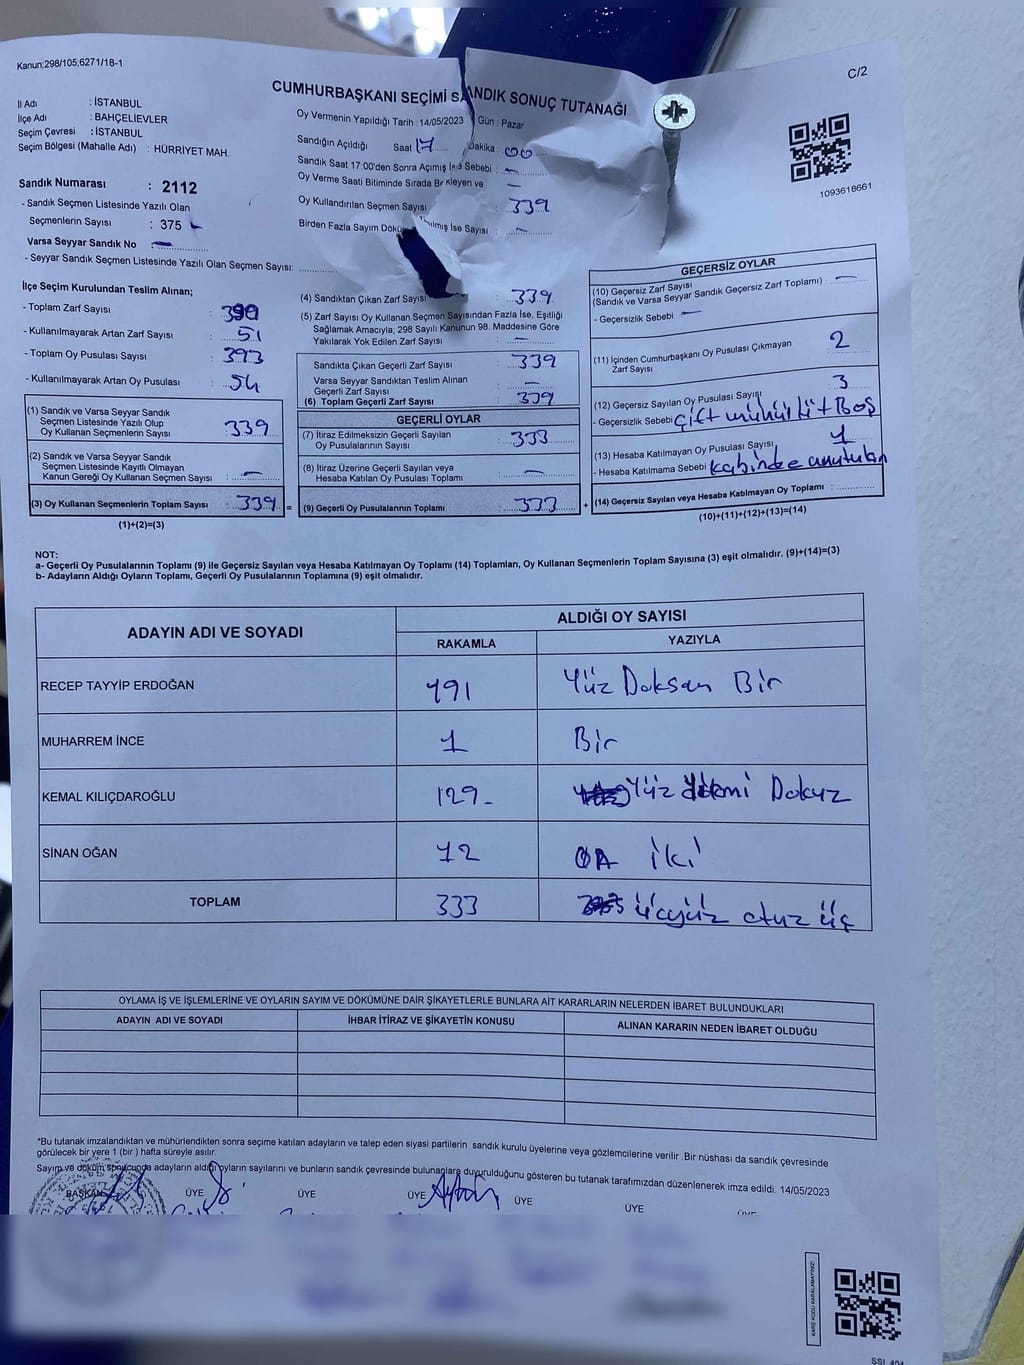 Kanun;298/105,6271/18-1
C/2
CUMHURBAŞKANI SEÇİMİ SANDIK SONUÇ TUTANAĞI
İl Adı : İSTANBUL
İlçe Adı : BAHÇELİEVLER
Seçim Çevresi : İSTANBUL
Seçim Bölgesi (Mahalle Adı) : HÜRRİYET MAH.
Oy Vermenin Yapıldığı Tarih : 14/05/2023 Gün : Pazar
Sandığın Açıldığı Saat 17 Dakika : 00
Sandık Saat 17:00'den Sonra Açılmış İse Sebebi : -
Oy Verme Saati Bitiminde Sırada Bekleyen ve -
Oy Kullandırılan Seçmen Sayısı : 339
Birden Fazla Sayım Döküm İse Sayısı -
1093618661
Sandık Numarası : 2112
- Sandık Seçmen Listesinde Yazılı Olan
Seçmenlerin Sayısı : 375
Varsa Seyyar Sandık No -
- Seyyar Sandık Seçmen Listesinde Yazılı Olan Seçmen Sayısı:
İlçe Seçim Kurulundan Teslim Alınan;
- Toplam Zarf Sayısı : 390
- Kullanılmayarak Artan Zarf Sayısı : 51
- Toplam Oy Pusulası Sayısı : 393
- Kullanılmayarak Artan Oy Pusulası : 54
(1) Sandık ve Varsa Seyyar Sandık
Seçmen Listesinde Yazılı Olup
Oy Kullanan Seçmenlerin Sayısı : 339
(2) Sandık ve Varsa Seyyar Sandık
Seçmen Listesinde Kayıtlı Olmayan
Kanun Gereği Oy Kullanan Seçmen Sayısı : -
(3) Oy Kullanan Seçmenlerin Toplam Sayısı : 339 =
(1)+(2)=(3)
(4) Sandıktan Çıkan Zarf Sayısı : 339
(5) Zarf Sayısı Oy Kullanan Seçmen Sayısından Fazla İse, Eşitliği
Sağlamak Amacıyla; 298 Sayılı Kanunun 98. Maddesine Göre
Yakılarak Yok Edilen Zarf Sayısı : -
Sandıkta Çıkan Geçerli Zarf Sayısı : 339
Varsa Seyyar Sandıktan Teslim Alınan
Geçerli Zarf Sayısı : -
(6) Toplam Geçerli Zarf Sayısı : 339
GEÇERLİ OYLAR
(7) İtiraz Edilmeksizin Geçerli Sayılan
Oy Pusulalarının Sayısı : 333
(8) İtiraz Üzerine Geçerli Sayılan veya
Hesaba Katılan Oy Pusulası Toplamı : -
(9) Geçerli Oy Pusulalarının Toplamı : 333 +
GEÇERSİZ OYLAR
(10) Geçersiz Zarf Sayısı : -
(Sandık ve Varsa Seyyar Sandık Geçersiz Zarf Toplamı)
- Geçersizlik Sebebi : -
(11) İçinden Cumhurbaşkanı Oy Pusulası Çıkmayan
Zarf Sayısı : 2
(12) Geçersiz Sayılan Oy Pusulası Sayısı : 3
- Geçersizlik Sebebi Çift mühürlü + Boş
(13) Hesaba Katılmayan Oy Pusulası Sayısı : 1
- Hesaba Katılmama Sebebi kabinde unutulan
(14) Geçersiz Sayılan veya Hesaba Katılmayan Oy Toplamı :
(10)+(11)+(12)+(13)=(14)
NOT:
a- Geçerli Oy Pusulalarının Toplamı (9) ile Geçersiz Sayılan veya Hesaba Katılmayan Oy Toplamı (14) Toplamları, Oy Kullanan Seçmenlerin Toplam Sayısına (3) eşit olmalıdır. (9)+(14)=(3)
b- Adayların Aldığı Oyların Toplamı, Geçerli Oy Pusulalarının Toplamına (9) eşit olmalıdır.
ADAYIN ADI VE SOYADI ALDIĞI OY SAYISI
RAKAMLA YAZIYLA
RECEP TAYYİP ERDOĞAN 191 Yüz Doksan Bir
MUHARREM İNCE 1 Bir
KEMAL KILIÇDAROĞLU 129 Yüz Yirmi Dokuz
SİNAN OĞAN 12 ON İKİ
TOPLAM 333 üçyüz otuz üç
OYLAMA İŞ VE İŞLEMLERİNE VE OYLARIN SAYIM VE DÖKÜMÜNE DAİR ŞİKAYETLERLE BUNLARA AİT KARARLARIN NELERDEN İBARET BULUNDUKLARI
ADAYIN ADI VE SOYADI İHBAR İTİRAZ VE ŞİKAYETİN KONUSU ALINAN KARARIN NEDEN İBARET OLDUĞU
*Bu tutanak imzalandıktan ve mühürlendikten sonra seçime katılan adayların ve talep eden siyasi partilerin sandık kurulu üyelerine veya gözlemcilerine verilir .Bir nüshası da sandık çevresinde
görülecek bir yere 1 (bir ) hafta süreyle asılır.
Sayım ve döküm sonucunda adayların aldığı oyların sayılarını ve bunların sandık çevresinde bulunanlara duyurulduğunu gösteren bu tutanak tarafımızdan düzenlenerek imza edildi. 14/05/2023
BAŞKAN ÜYE ÜYE ÜYE ÜYE ÜYE ÜYE
KARE KODU KARALAMAYINIZ!